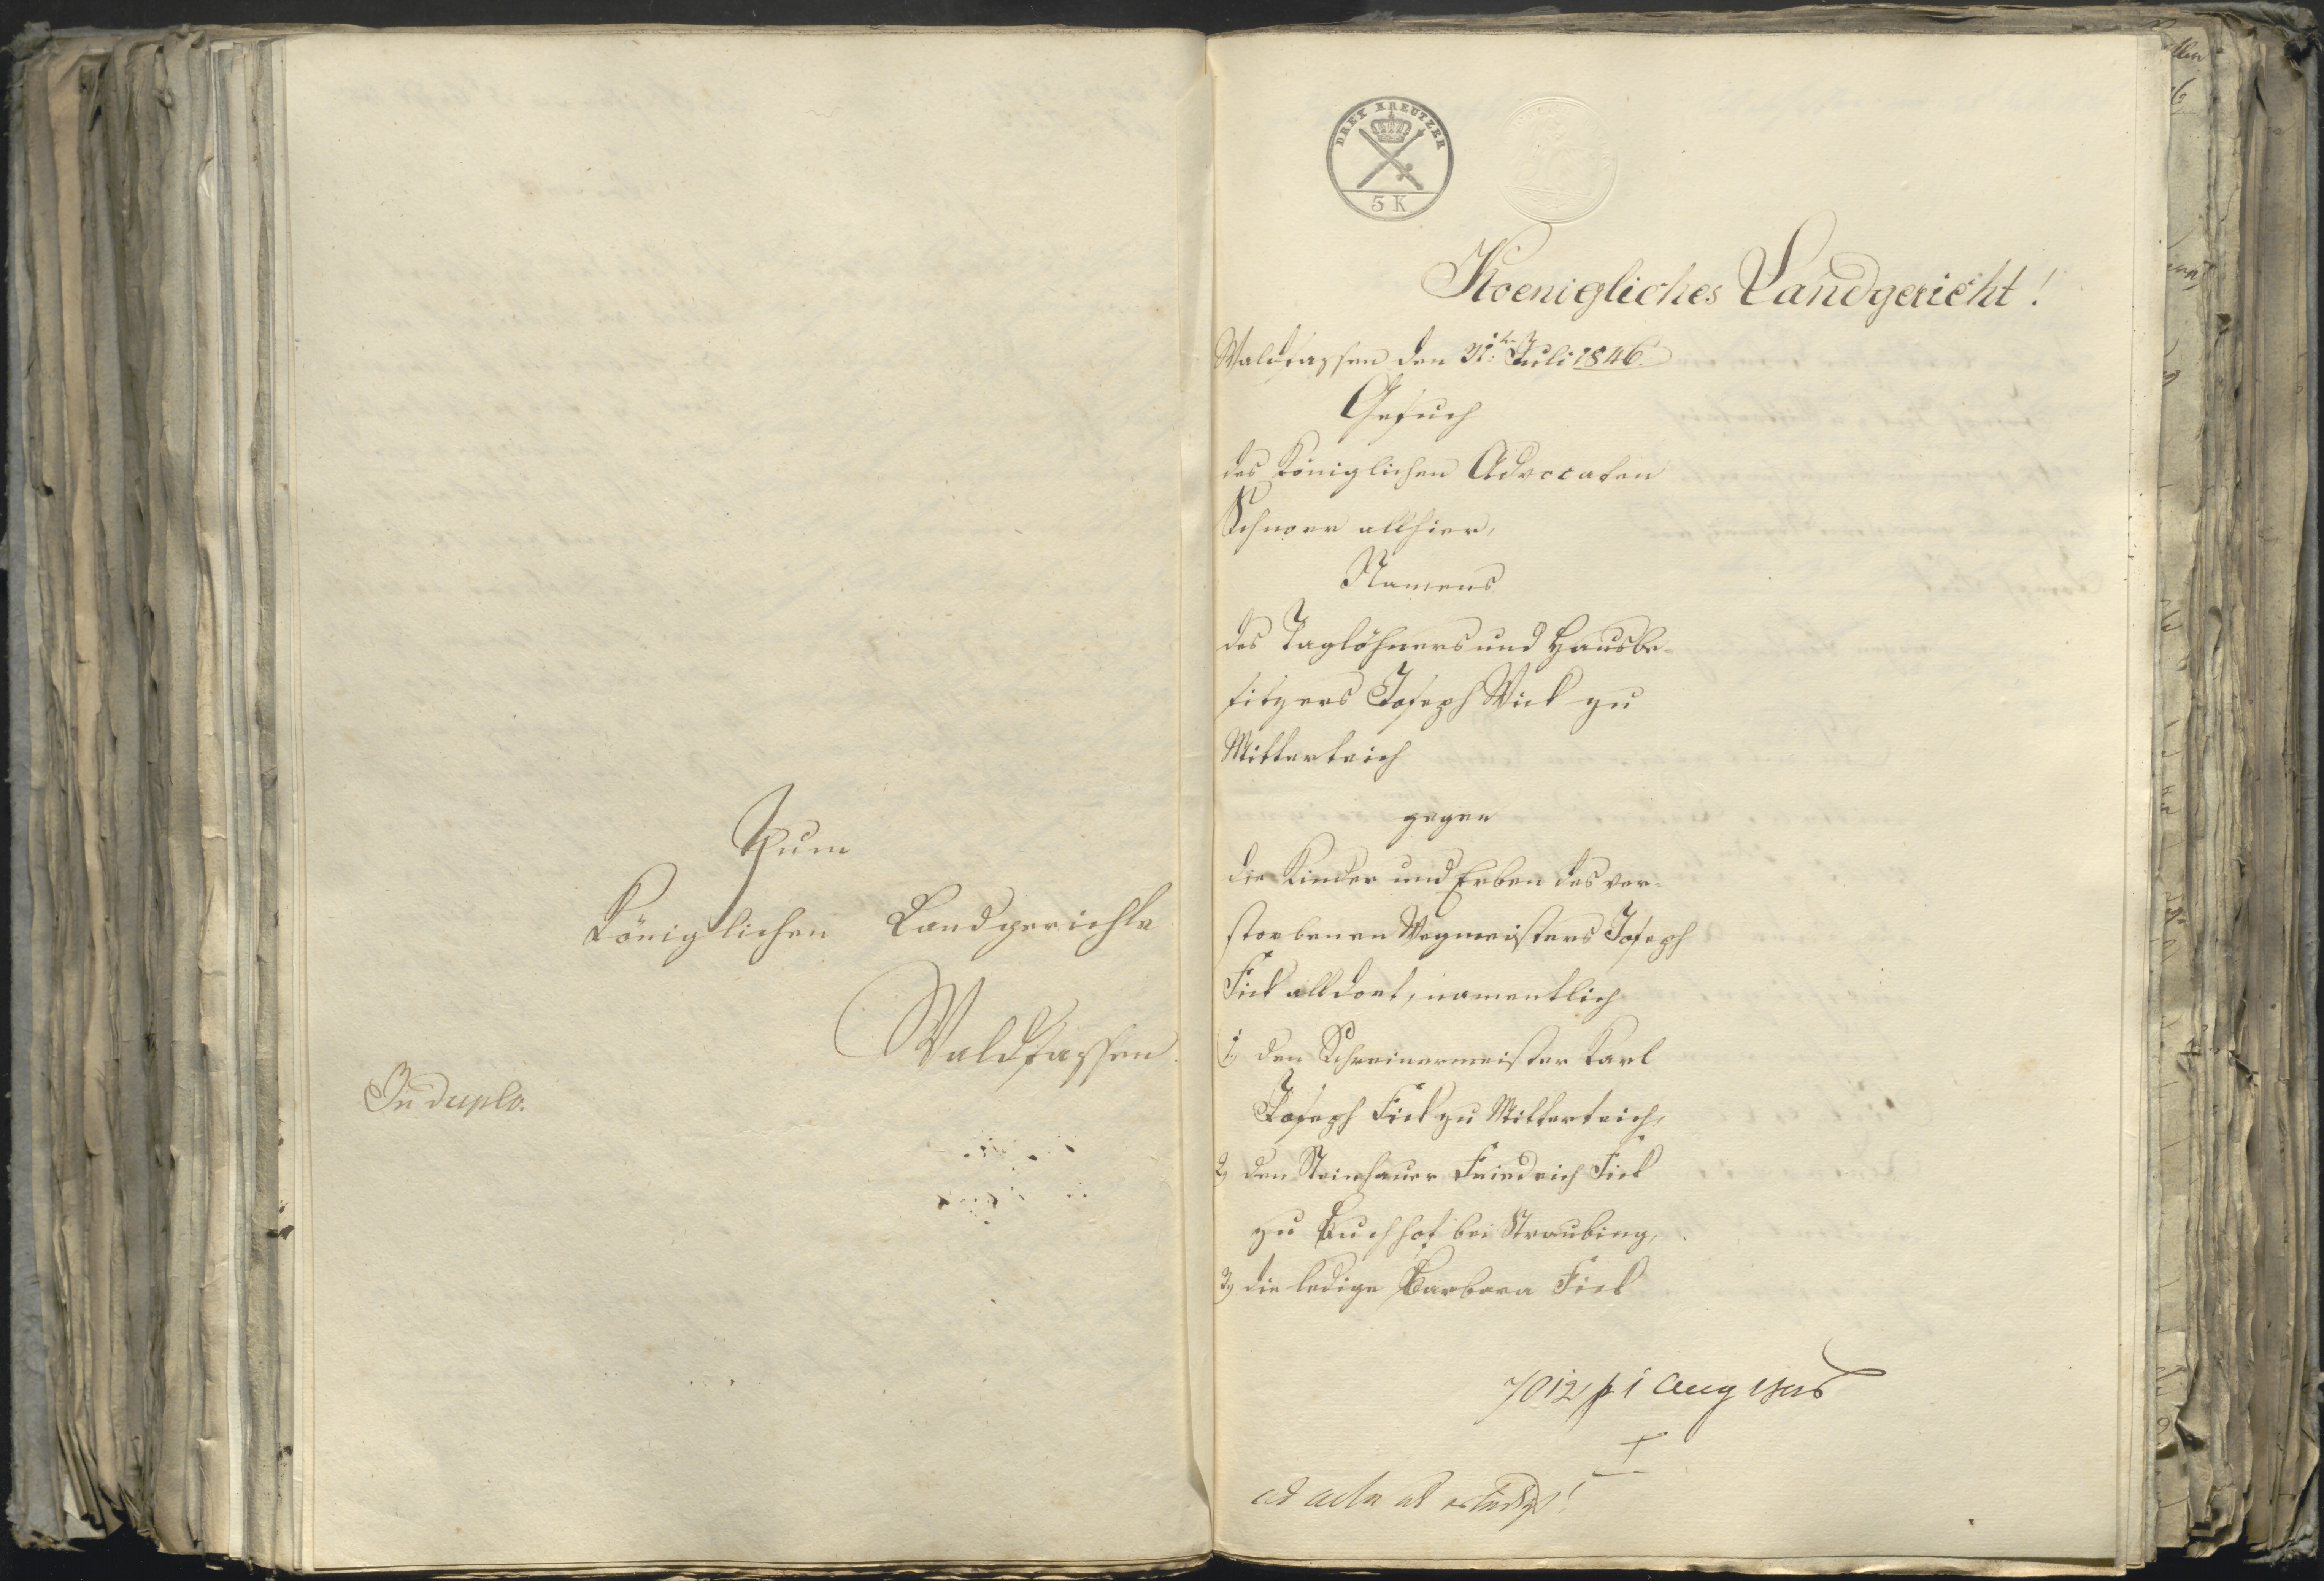 Zum
Königlichen Landgerichte
Waldsassen.
In duplo.
DREY KREUTZER
3 K
Koenigliches Landgericht!
Waldsassen den 31. Juli 1846.
Gesuch
des Königlichen Advocaten
Schnorr allhier,
Namens
des Taglöhners und Hausbe-
sitzers Joseph Wick zu
Mitterteich
gegen
die Kinder und Erben des ver-
storbenen Wegmeisters Joseph
Fick alldort, namentlich
1, den Schreinermeister Karl
Joseph Fick zu Mitterteich,
2, den Steinhauer Friedrich Fick
zu Buchhof bei Straubing,
3, die ledige Barbara Fick
7012 p 1 Aug
I
ad acta als erledigt!